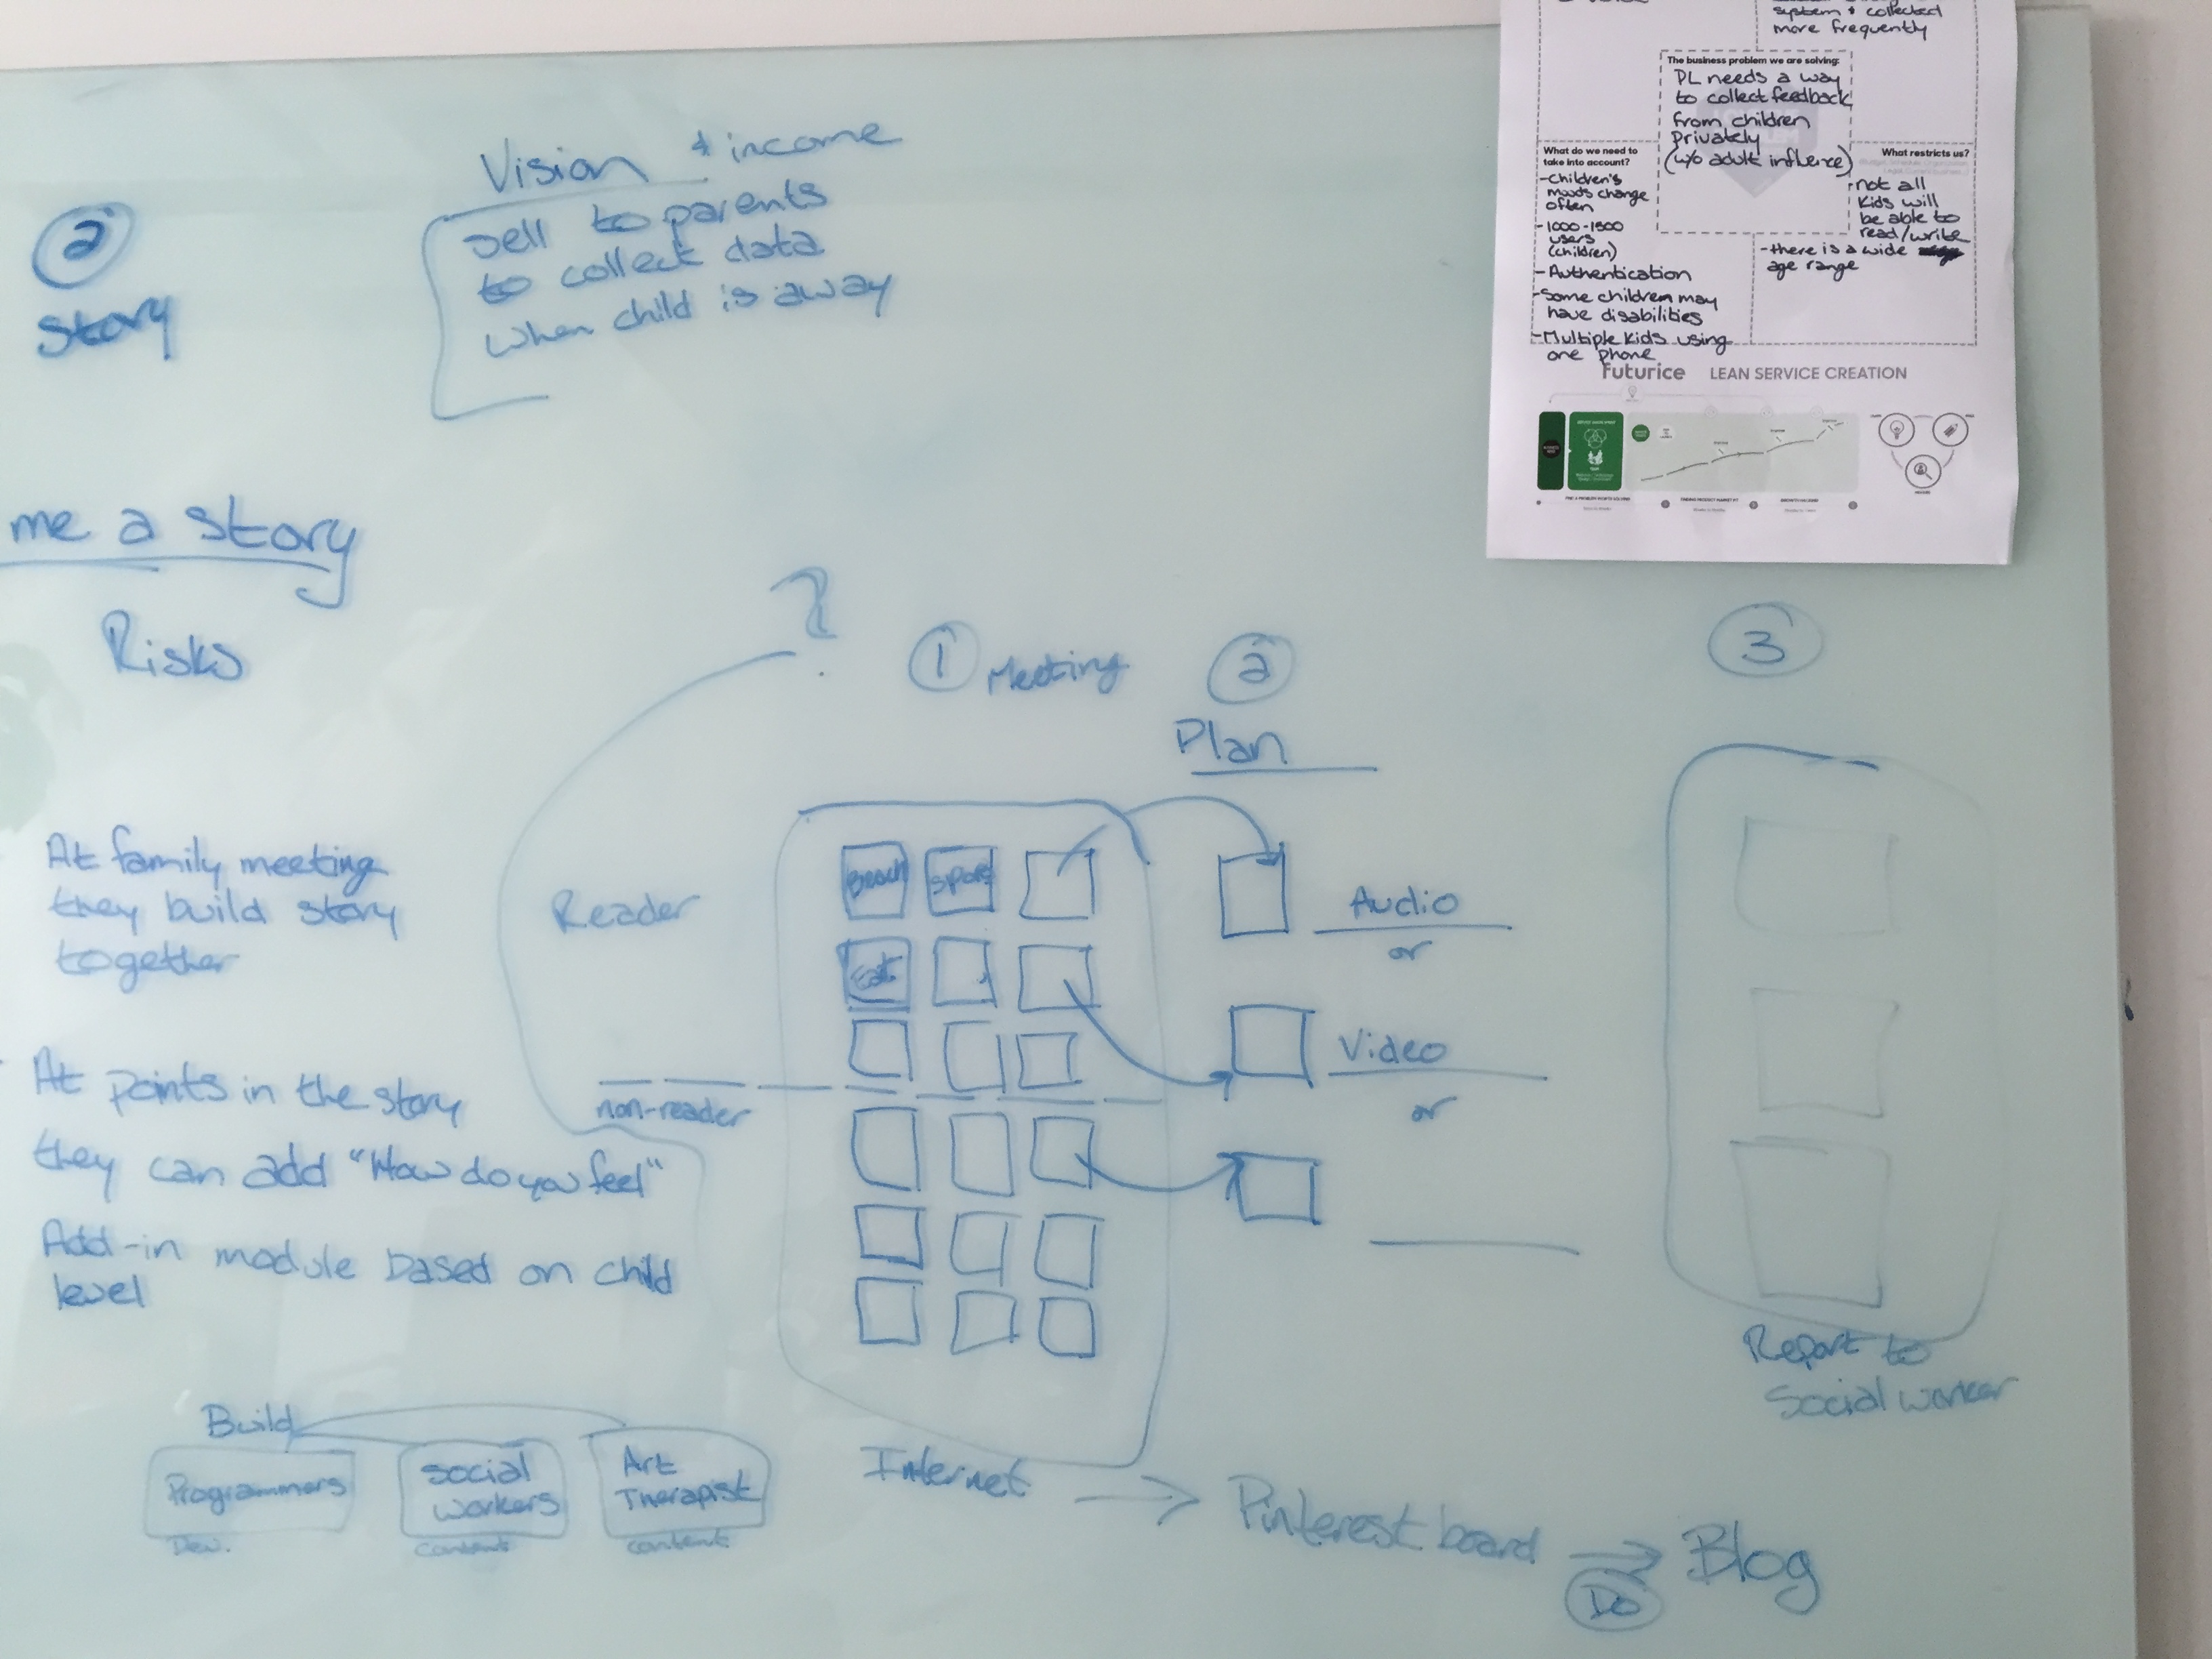 2
story
Vision & income
sell to parents
to collect data
when child is away
me a story
Risks
At family meeting
they build story
together
At points in the story
they can add "How do you feel"
Add-in module based on child
level
Build
Programmers
Dev.
social
workers
content
Art
Therapist
content
?
Reader
non-reader
1 Meeting
Beach
Sport
Eat
Internet
2
Plan
Audio
or
Video
or
3
Report to
Social worker
Pinterest board
Do
Blog
system & collected
more frequently
The business problem we are solving:
PL needs a way
to collect feedback
from children
privately
(w/o adult influence)
What do we need to
take into account?
-Children's
moods change
often
-1000-1500
users
(children)
-Authentication
-Some children may
have disabilities
-Multiple kids using
one phone
What restricts us?
-not all
kids will
be able to
read/write
-there is a wide
age range
futurice LEAN SERVICE CREATION